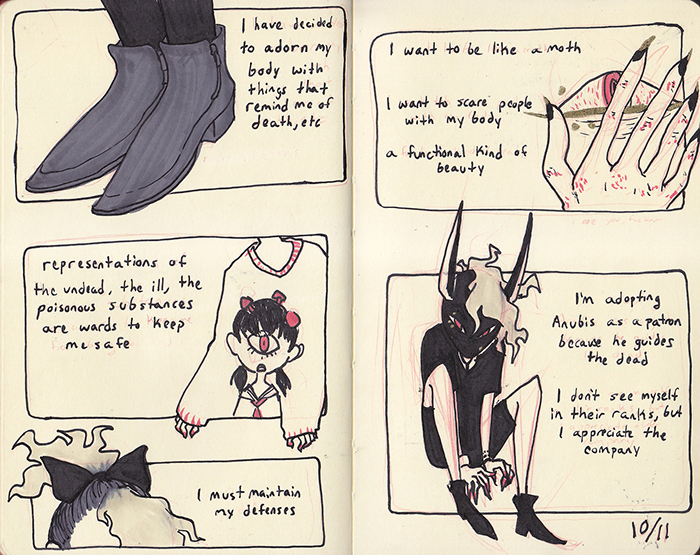 I have decided
to adorn my
body with
things that
remind me of
death, etc
representations of
the undead, the ill, the
poisonous substances
are wards to keep
me safe
I must maintain
my defenses
I want to be like a moth
I want to scare people
with my body
a functional kind of
beauty
I'm adopting
Anubis as a patron
because he guides
the dead
I don't see myself
in their ranks, but
I appreciate the
company
10/11